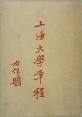 上海大學章程
右任題